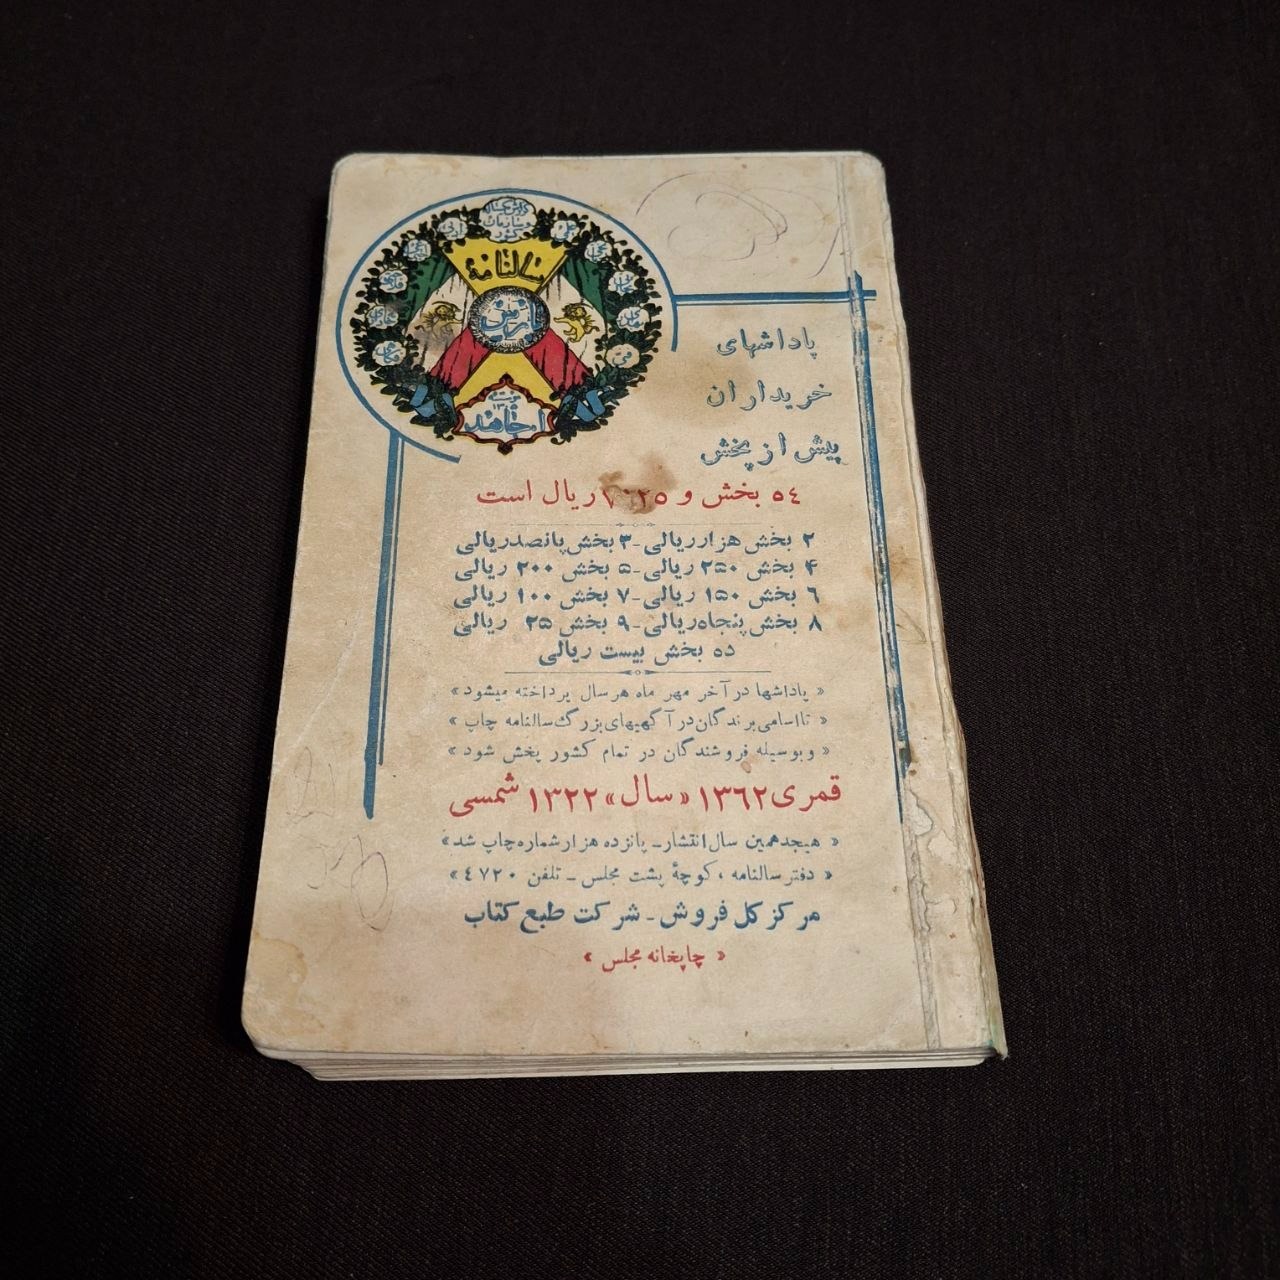 سالنامه
پارس
پاداشهای
خریداران
پیش از پخش
٥٤ بخش و ٧٠٢٥ ریال است
۲ بخش هزار ریالی - ۳ بخش پانصد ریالی
۴ بخش ۲۵۰ ریالی - ۵ بخش ۲۰۰ ریالی
۶ بخش ۱۵۰ ریالی - ۷ بخش ۱۰۰ ریالی
۸ بخش پنجاه ریالی - ۹ بخش ۲۵ ریالی
ده بخش بیست ریالی
« پاداشها در آخر مهر ماه هر سال پرداخته میشود »
« تا اسامی برندگان در آگهیهای بزرگ سالنامه چاپ »
« و بوسیله فروشندگان در تمام کشور پخش شود »
قمری ١٣٦٢ « سال » ١٣٢٢ شمسی
« هیجدهمین سال انتشار - پانزده هزار شماره چاپ شد »
« دفتر سالنامه ، کوچهٔ پشت مجلس - تلفن ٤٧٢٠ »
مرکز کل فروش - شرکت طبع کتاب
« چاپخانه مجلس »